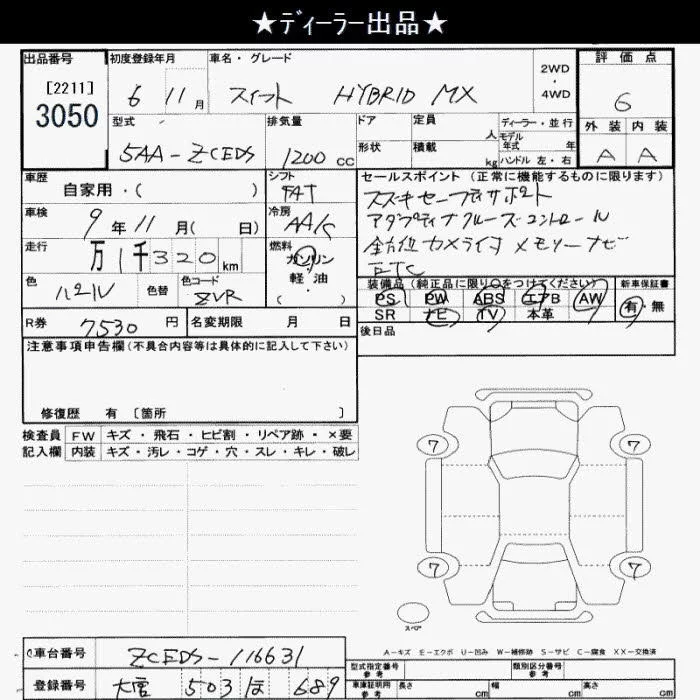 ★ディーラー出品★
出品番号
[2211]
3050
初度登録年月
6 11月
車名・グレード
スイフト HYBRID MX
2WD
・
4WD
評価点
6
外装 内装
A A
型式
5AA-ZCEDS
排気量
1200 cc
ドア
形状
定員 人
積載 kg
ディーラー・並行
モデル年式 年
ハンドル 左・右
車歴
自家用・( )
シフト
FAT
車検
9年11月( 日)
冷房
AAC
走行
万1千320km
燃料
ガソリン
・
軽・油
( )
色
パール
色替
色コード
ZVR
R券 7530円
名変期限 月 日
セールスポイント(正常に機能するものに限ります)
スズキセーフティサポート
アダプティブクルーズコントロール
全方位カメラ付メモリーナビ
ETC
装備品(純正品に限り○をつけてください)
PS PW ABS エアB AW
SR ナビ TV 本革
新車保証書
有・無
後日品
注意事項申告欄(不具合内容等は具体的に記入して下さい)
修復歴 有〔箇所 〕
検査員 FW キズ・飛石・ヒビ割・リペア跡・×要
記入欄 内装 キズ・汚レ・コゲ・穴・スレ・キレ・破レ
7 7
7 7
スペア
A-キズ E-エクボ U-凹み W-補修跡 S-サビ C-腐食 XX-交換済
車台番号 ZCEDS-116631
登録番号 503 ほ 689
型式指定番号 参考
類別区分番号 参考
車庫証明用 参考
長さ cm 幅 cm 高さ cm